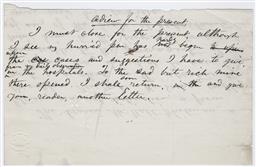 adieu for the present.
I must close for the present, although
I see my hurried pen has hardly begun
upon the cases and suggestions I have to give,
from my daily observation
in the hospitals. To the sad but rich mine
there opened I shall soon return, and give
you, reader, another letter.